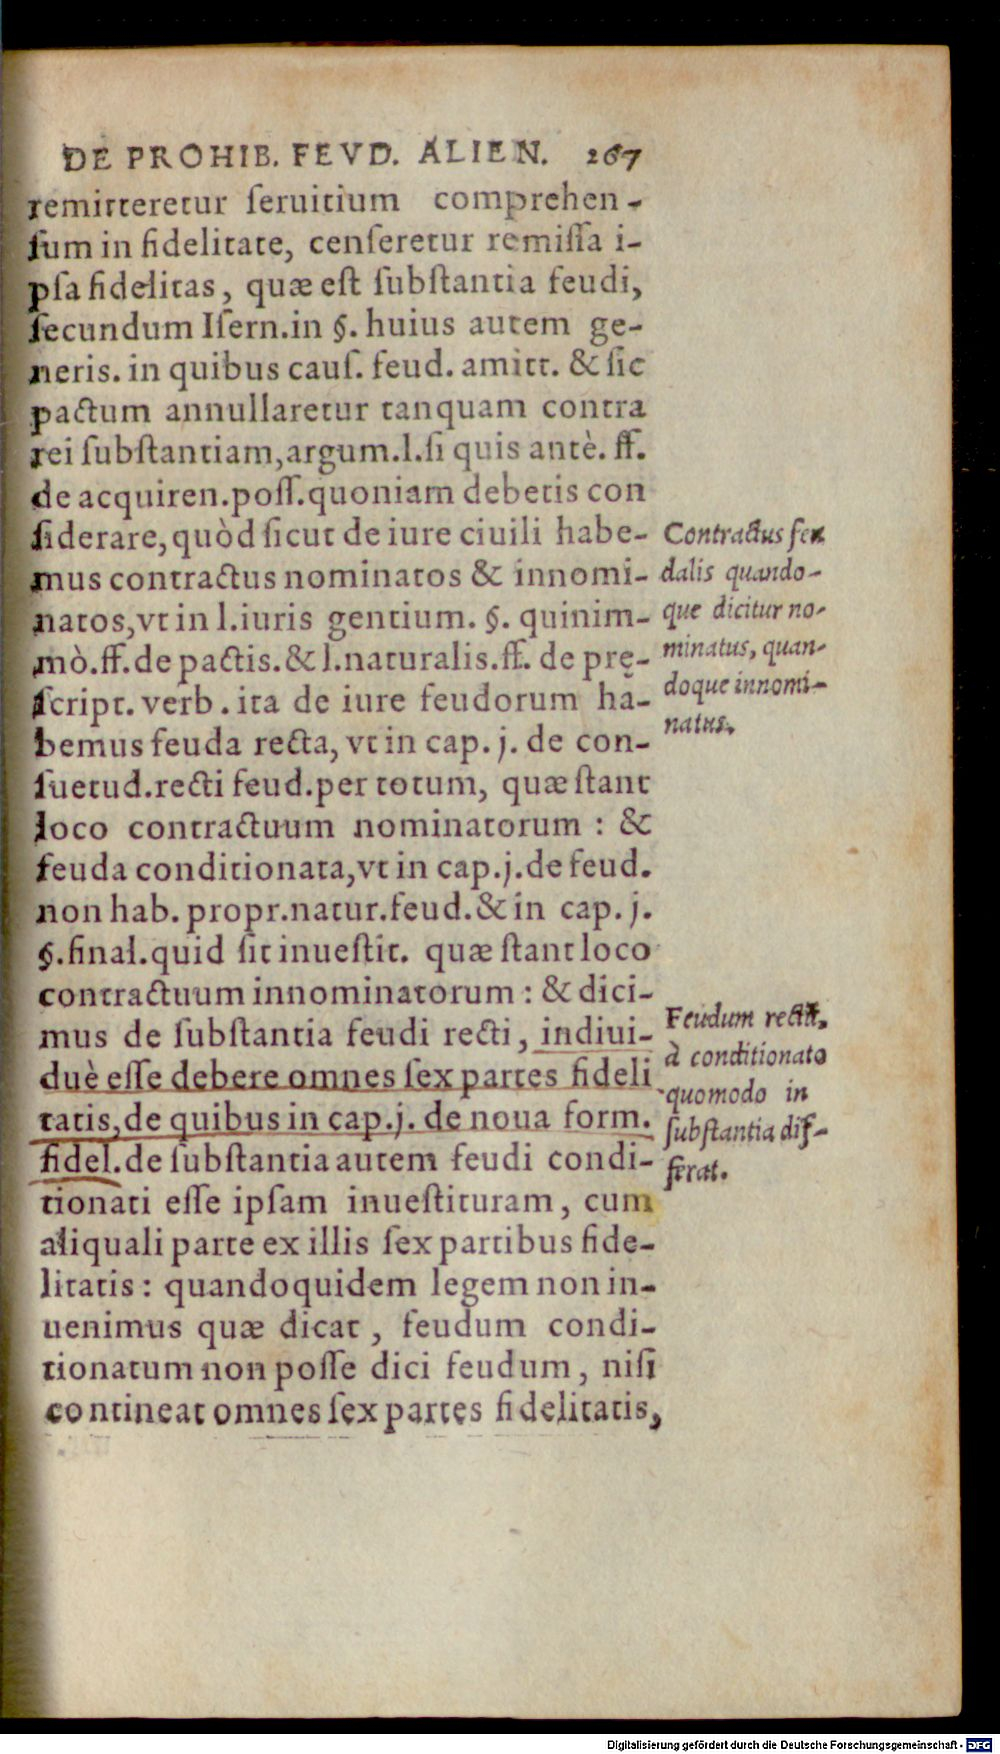 DE PROHIB. FEVD. ALIEN. 267
remitteretur ſeruitium comprehen-
ſum in fidelitate, cenſeretur remiſſa i-
pſa fidelitas, quæ eſt ſubſtantia feudi,
ſecundum Iſern.in §. huius autem ge-
neris. in quibus cauſ. feud. amitt. & ſic
pactum annullaretur tanquam contra
rei ſubſtantiam,argum.l.ſi quis antè. ff.
de acquiren.poſſ.quoniam debetis con
ſiderare, quòd ſicut de iure ciuili habe-
mus contractus nominatos & innomi-
natos,vt in l.iuris gentium. §. quinim-
mò.ff.de pactis.& l.naturalis.ff. de prę-
ſcript. verb. ita de iure feudorum ha-
bemus feuda recta, vt in cap. j. de con-
ſuetud.recti feud.per totum, quæ ſtant
loco contractuum nominatorum : &
feuda conditionata,vt in cap.j.de feud.
non hab. propr.natur.feud.& in cap. j.
§.final.quid ſit inueſtit. quæ ſtant loco
contractuum innominatorum : & dici-
mus de ſubſtantia feudi recti, indiui-
duè eſſe debere omnes ſex partes fideli
tatis,de quibus in cap.j. de noua form.
fidel.de ſubſtantia autem feudi condi-
tionati eſſe ipſam inueſtituram, cum
aliquali parte ex illis ſex partibus fide-
litatis : quandoquidem legem non in-
uenimus quæ dicat, feudum condi-
tionatum non poſſe dici feudum, niſi
contineat omnes ſex partes fidelitatis,
Contractus feu
dalis quando-
que dicitur no-
minatus, quan-
doque innomi-
natus.
Feudum rectū,
à conditionato
quomodo in
ſubſtantia dif-
ferat.
Digitalisierung gefördert durch die Deutsche Forschungsgemeinschaft - DFG